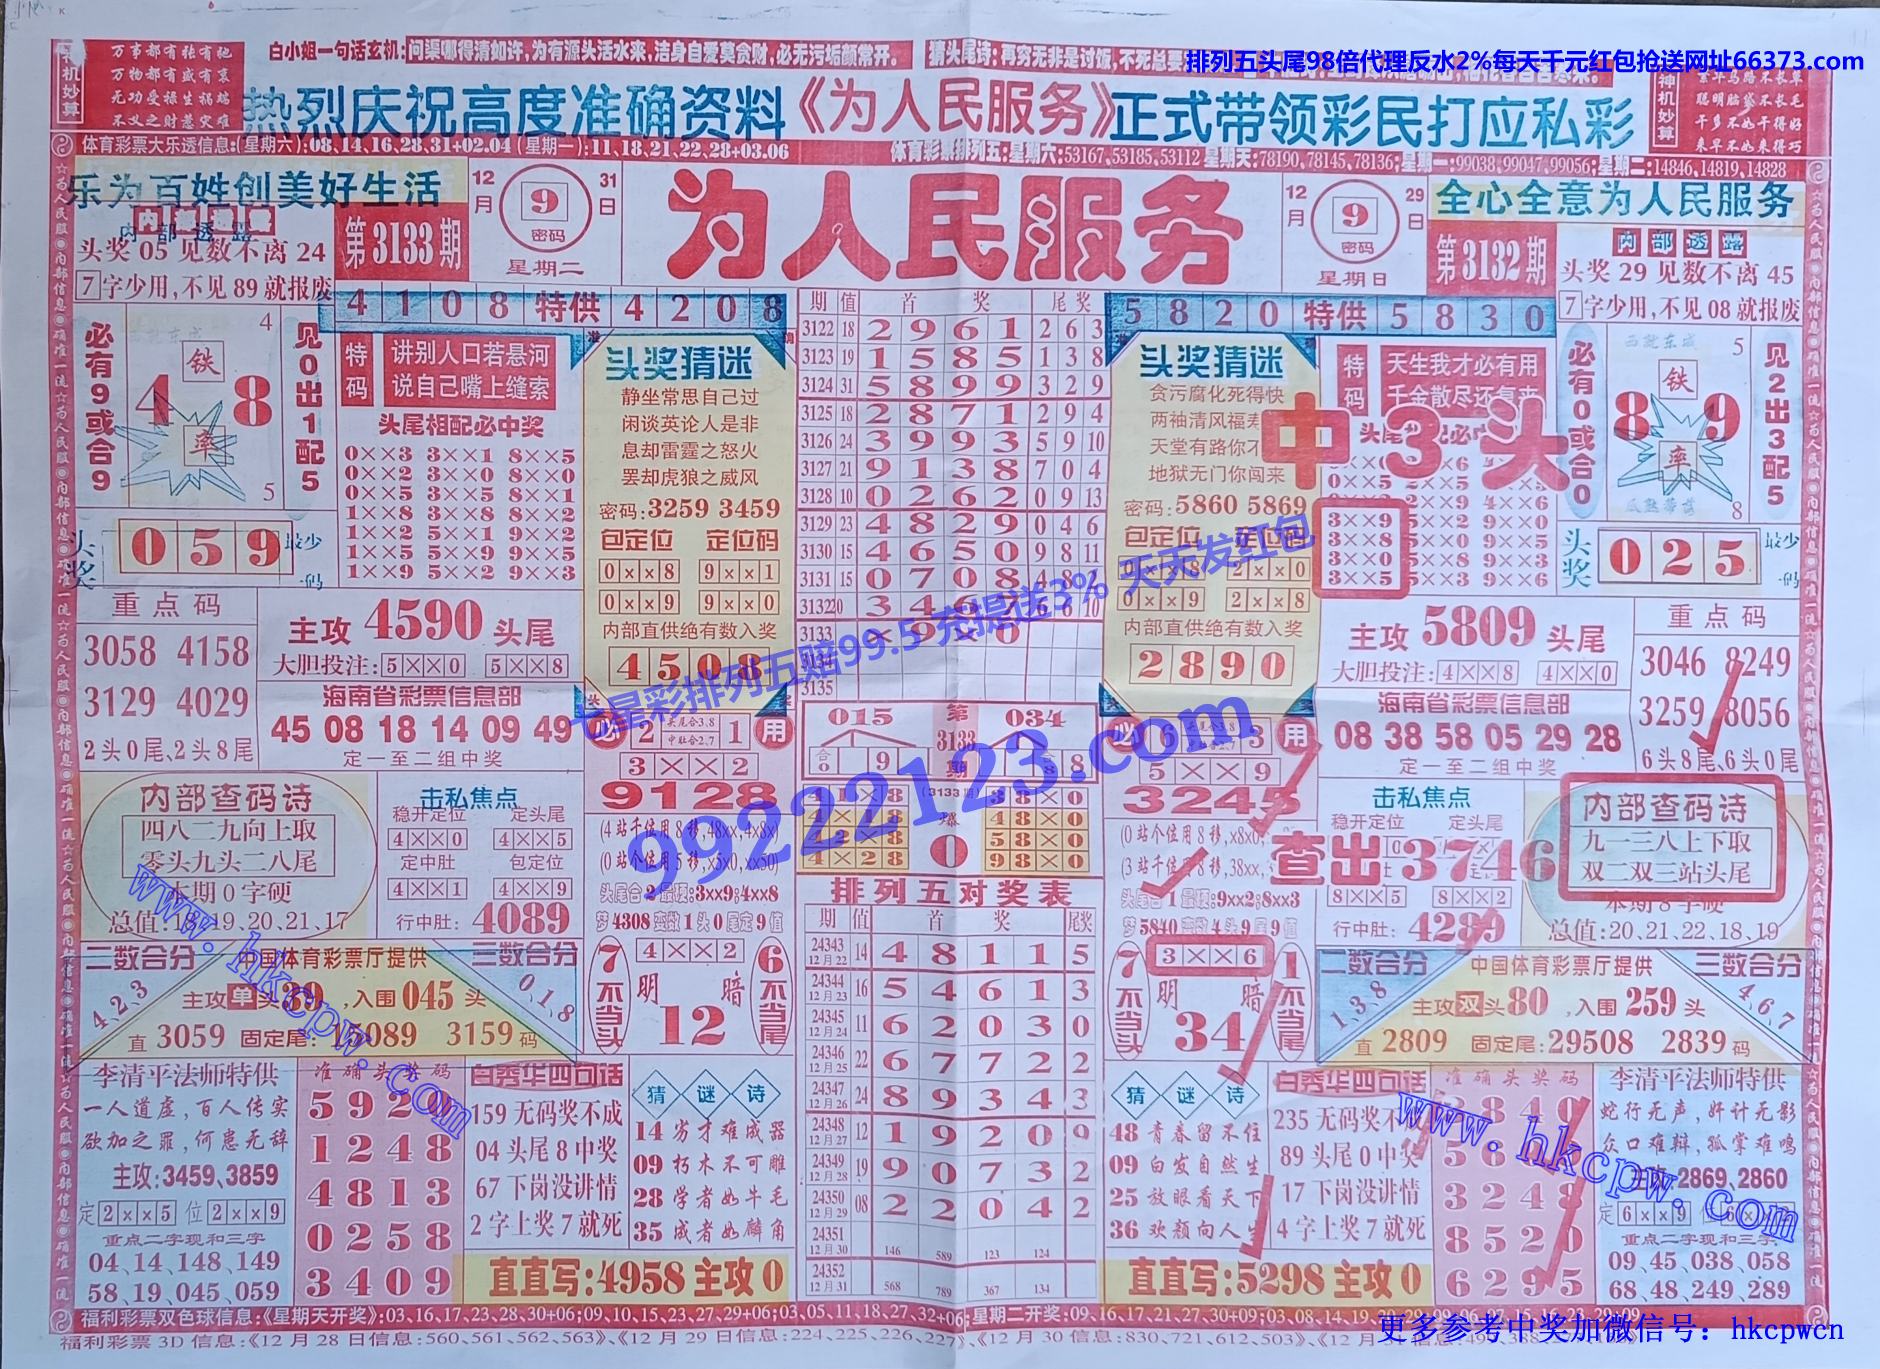 白小姐一句话玄机:问渠哪得清如许,为有源头活水来,洁身自爱莫贪财,必无污垢颜常开。
猜头尾诗:再穷无非是讨饭,不死总要
排列五头尾98倍代理反水2%每天千元红包抢送网址66373.com
神机妙算
万事都有张有弛
万物都有盛有衰
无功受禄生祸端
不义之财惹灾难
热烈庆祝高度准确资料《为人民服务》正式带领彩民打应私彩
神机妙算
聪明脑袋不长毛
干多不如干得好
来早不如来得巧
体育彩票大乐透信息:(星期六):08,14,16,28,31+02.04(星期一):11,18,21,22,28+03.06
体育彩票排列五:星期六:53167,53185,53112 星期天:78190,78145,78136;星期一:99038,99047,99056;星期二:14846,14819,14828
乐为百姓创美好生活
内部透露
头奖 05 见数不离 24
7字少用,不见 89 就报废
第3133期
12月
9
密码
31日
星期二
为人民服务
12月
9
密码
29日
星期日
全心全意为人民服务
第3132期
内部透露
头奖 29 见数不离 45
7字少用,不见 08 就报废
4108特供4208
必有9或合9
4
铁
4 8
率
5
见0出1配5
头奖 059 最少一码
特码
讲别人口若悬河
说自己嘴上缝索
头尾相配必中奖
0××3 3××1 8××5
0××2 3××0 8××0
0××5 3××5 8××1
1××0 3××8 8××2
1××2 5××1 9××2
1××5 5××9 9××5
1××9 5××2 9××3
头奖猜迷
静坐常思自己过
闲谈英论人是非
息却雷霆之怒火
罢却虎狼之威风
密码:3259 3459
包定位 定位码
0××8 9××1
0××9 9××0
内部直供绝有数入奖
4508
期 值 首奖 尾奖
3122 18 2 9 6 1 2 6 3
3123 19 1 5 8 5 1 3 8
3124 31 5 8 9 9 3 2 9
3125 18 2 8 7 1 2 9 4
3126 24 3 9 9 3 5 9 10
3127 21 9 1 3 8 7 0 4
3128 10 0 2 6 2 0 9 13
3129 23 4 8 2 9 0 4 6
3130 15 4 6 5 0 9 8 11
3131 15 0 7 0 8
3132 20
3133
3134
3135
5820特供5830
头奖猜迷
贪污腐化死得快
两袖清风福寿
天堂有路你不
地狱无门你闯来
密码:5860 5869
包定位 定位码
0××8 2××0
0××9 2××8
内部直供绝有数入奖
2890
特码
天生我才必有用
千金散尽还复来
中3头
3××9
3××8
3××0
3××5
必有0或合0
西就东成
5
铁
8 9
率
瓜熟蒂落
8
见2出3配5
头奖 025 最少一码
重点码
3058 4158
3129 4029
2头0尾,2头8尾
主攻 4590 头尾
大胆投注: 5××0 5××8
海南省彩票信息部
45 08 18 14 09 49
定一至二组中奖
主攻 5809 头尾
大胆投注: 4××8 4××0
海南省彩票信息部
08 38 58 05 29 28
定一至二组中奖
重点码
3046 8249
3259 8056
6头8尾,6头0尾
七星彩排列五赔99.5 充提送3% 天天发红包
99222123.com
内部查码诗
四八二九向上取
零头九头二八尾
本期 0 字硬
总值:18,19,20,21,17
击私焦点
稳开定位 定头尾
4××0 4××5
定中肚 包定位
4××1 4××9
行中肚: 4089
必 2 头尾合3,8 中肚合2,7 1 用
3××2
9128
(4 站千位用 8 移,48xx,4x8x)
(0 站个位用 5 移,x5x0,xx50)
头尾合 2 最硬:3xx9;4xx8
梦 4308 变数 1 头 0 尾定 9 值
015
第3133期
034
合0 9
合8 8
(3133期)
爆
0
必 6 3 用
5××9
3245
(0 站个位用 8 移,x8x0,
(3 站千位用 8 移,38xx,
头尾合 1 最硬:9xx2;8xx3
梦 5840 变数 4 头 9 尾 9 值
击私焦点
稳开定位 定头尾
查出3746
8××5 8××2
行中肚: 4289
内部查码诗
九一三八上下取
双二双三站头尾
本期 8 字硬
总值:20,21,22,18,19
二数合分
4,2,3
中国体育彩票厅提供
主攻单头39,入围045头
直 3059 固定尾: 3159 码
三数合分
0,1,8
7不当头
4××2
明 暗
12
6不当尾
排列五对奖表
期 值 首奖 尾奖
24343 12月22 14 4 8 1 1 5
24344 12月23 16 5 4 6 1 3
24345 12月24 11 6 2 0 3 0
24346 12月25 22 6 7 7 2 2
24347 12月26 24 8 9 3 4 3
24348 12月27 12 1 9 2 0 9
24349 12月28 19 9 0 7 3 2
24350 12月29 08 2 2 0 4 2
24351 12月30 146 589 123 124
24352 12月31 568 789 367 134
7不当头
3××6
明 暗
34
1不当尾
二数合分
1,3,8
中国体育彩票厅提供
主攻双头80,入围259头
直 2809 固定尾:29508 2839 码
三数合分
4,6,7
李清平法师特供
一人道虚,百人传实
欲加之罪,何患无辞
主攻:3459、3859
定2××5 位2××9
重点二字现和三字
04、14、148、149
58、19、045、059
准确头奖码
5920
1248
4813
0258
3409
白秀华四句话
159 无码奖不成
04 头尾 8 中奖
67 下岗没讲情
2 字上奖 7 就死
猜谜诗
14 穷才难成器
09 朽木不可雕
28 学者如牛毛
35 成者如麟角
直直写:4958 主攻 0
猜谜诗
48 青春留不住
09 白发自然生
25 放眼看天下
36 欢颜向人生
白秀华四句话
235 无码奖不成
89 头尾 0 中奖
17 下岗没讲情
4 字上奖 7 就死
直直写:5298 主攻 0
准确头奖码
3248
8520
6295
李清平法师特供
蛇行无声,奸计无影
众口难辩,孤掌难鸣
主攻:2869、2860
定6××9
重点二字现和三字
09、45、038、058
68、48、249、289
www.hkcpw.com
www.hkcpw.com
福利彩票双色球信息:《星期天开奖》:03,16,17,23,28,30+06;09,10,15,23,27,29+06;03,05,11,18,27,32+06;星期二开奖:09,16,17,21,27,30+09;
福利彩票 3D 信息:《12 月 28 日信息:560,561,562,563》、《12 月 29 日信息:224,225,226,227》、《12 月 30 信息:830,721,612,503》
更多参考中奖加微信号：hkcpwcn